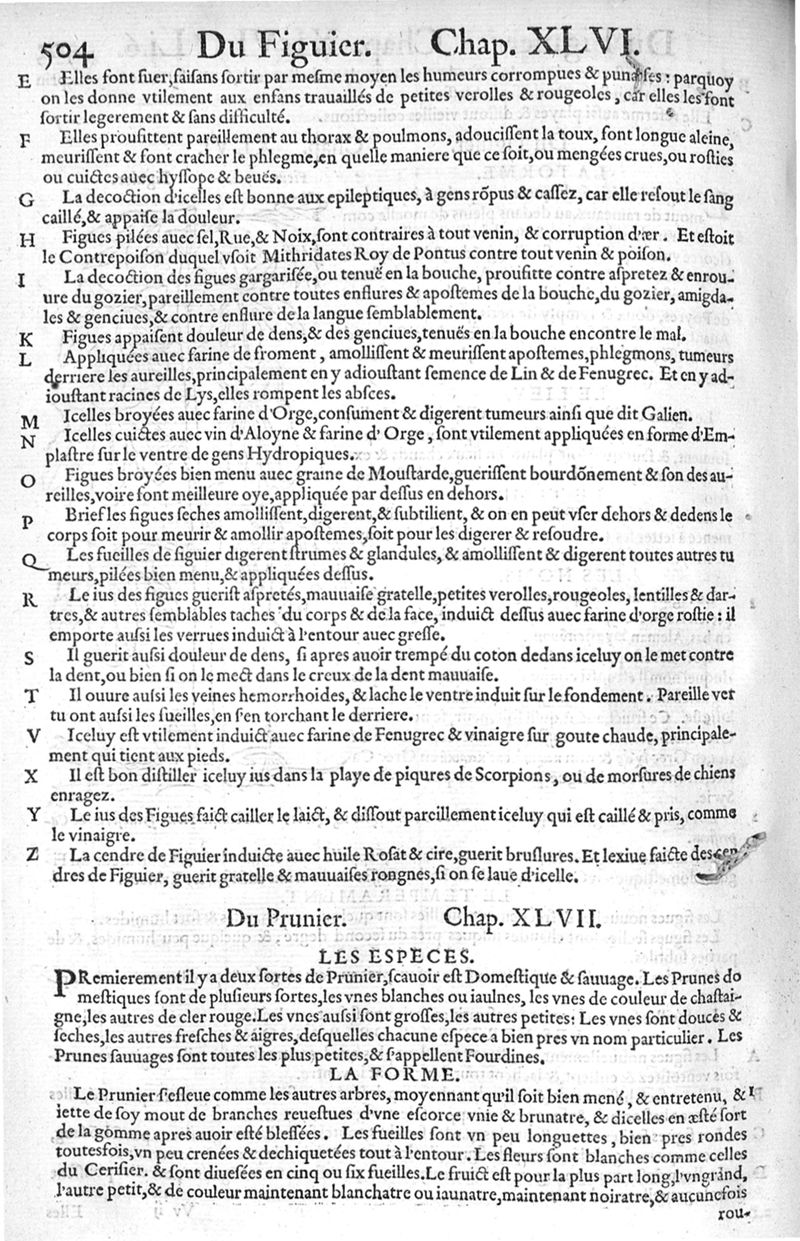 504 Du Figuier. Chap. XLVI.
E Elles font ſuer, faiſans ſortir par meſme moyen les humeurs corrompues & punaiſes : parquoy
on les donne vtilement aux enfans trauaillés de petites verolles & rougeoles, car elles les font
ſortir legerement & ſans difficulté.
F Elles proufittent pareillement au thorax & poulmons, adouciſſent la toux, font longue aleine,
meuriſſent & font cracher le phlegme, en quelle maniere que ce ſoit, ou mengées crues, ou roſties
ou cuictes auec hyſſope & beuës.
G La decoction d'icelles eſt bonne aux epileptiques, à gens rõpus & caſſez, car elle reſout le ſang
caillé, & appaiſe la douleur.
H Figues pilées auec ſel, Rue, & Noix, ſont contraires à tout venin, & corruption d'ær. Et eſtoit
le Contrepoiſon duquel vſoit Mithridates Roy de Pontus contre tout venin & poiſon.
I La decoction des figues gargariſée, ou tenuë en la bouche, proufitte contre aſpretez & enrou-
ure du gozier, pareillement contre toutes enflures & apoſtemes de la bouche, du gozier, amigda-
les & genciues, & contre enflure de la langue ſemblablement.
K Figues appaiſent douleur de dens, & des genciues, tenuës en la bouche encontre le mal.
L Appliquées auec farine de froment, amolliſſent & meuriſſent apoſtemes, phlegmons, tumeurs
derriere les aureilles, principalement en y adiouſtant ſemence de Lin & de Fenugrec. Et en y ad-
iouſtant racines de Lys, elles rompent les abſces.
M Icelles broyées auec farine d'Orge, conſument & digerent tumeurs ainſi que dit Galien.
N Icelles cuictes auec vin d'Aloyne & farine d'Orge, ſont vtilement appliquées en forme d'Em-
plaſtre ſur le ventre de gens Hydropiques.
O Figues broyées bien menu auec graine de Mouſtarde, gueriſſent bourdõnement & ſon des au-
reilles, voire font meilleure oye, appliquée par deſſus en dehors.
P Brief les figues ſeches amolliſſent, digerent, & ſubtilient, & on en peut vſer dehors & dedens le
corps ſoit pour meurir & amollir apoſtemes, ſoit pour les digerer & reſoudre.
Q Les fueilles de figuier digerent ſtrumes & glandules, & amolliſſent & digerent toutes autres tu
meurs, pilées bien menu, & appliquées deſſus.
R Le ius des figues gueriſt aſpretés, mauuaiſe gratelle, petites verolles, rougeoles, lentilles & dar-
tres, & autres ſemblables taches du corps & de la face, induict deſſus auec farine d'orge roſtie : il
emporte auſſi les verrues induict à l'entour auec greſſe.
S Il guerit auſſi douleur de dens, ſi apres auoir trempé du coton dedans iceluy on le met contre
la dent, ou bien ſi on le mect dans le creux de la dent mauuaiſe.
T Il ouure auſſi les veines hemorrhoides, & lache le ventre induit ſur le fondement. Pareille ver
tu ont auſſi les fueilles, en ſ'en torchant le derriere.
V Iceluy eſt vtilement induict auec farine de Fenugrec & vinaigre ſur goute chaude, principale-
ment qui tient aux pieds.
X Il eſt bon diſtiller iceluy ius dans la playe de piqures de Scorpions, ou de morſures de chiens
enragez.
Y Le ius des Figues faict cailler le laict, & diſſout pareillement iceluy qui eſt caillé & pris, comme
le vinaigre.
Z La cendre de Figuier induicte auec huile Roſat & cire, guerit bruſlures. Et lexiue faicte des cen
dres de Figuier, guerit gratelle & mauuaiſes rongnes, ſi on ſe laue d'icelle.
Du Prunier. Chap. XLVII.
LES ESPECES.
PRemierement il y a deux ſortes de Prunier, ſcauoir eſt Domeſtique & ſauuage. Les Prunes do
meſtiques ſont de pluſieurs ſortes, les vnes blanches ou iaulnes, les vnes de couleur de chaſtai-
gne, les autres de cler rouge. Les vnes auſſi ſont groſſes, les autres petites: Les vnes ſont douces &
ſeches, les autres freſches & aigres, deſquelles chacune eſpece a bien pres vn nom particulier. Les
Prunes ſauuages ſont toutes les plus petites, & ſ'appellent Fourdines.
LA FORME.
Le Prunier ſ'eſleue comme les autres arbres, moyennant qu'il ſoit bien mené, & entretenu, &
iette de ſoy mout de branches reueſtues d'vne eſcorce vnie & brunatre, & dicelles en æſté ſort
de la gomme apres auoir eſté bleſſées. Les fueilles ſont vn peu longuettes, bien pres rondes
toutesfois, vn peu crenées & dechiquetées tout à l'entour. Les fleurs ſont blanches comme celles
du Ceriſier. & ſont diueſées en cinq ou ſix fueilles. Le fruict eſt pour la plus part long, l'vn grãnd,
l'autre petit, & de couleur maintenant blanchatre ou iaunatre, maintenant noiratre, & aucuncfois
rou-